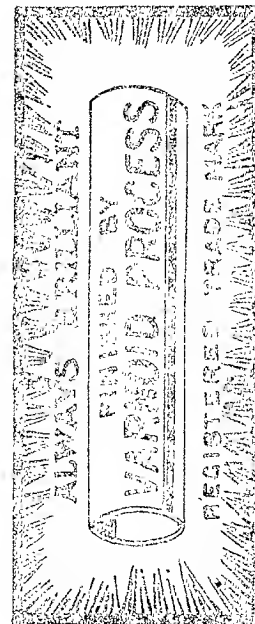 ALWAYS BRILLIANT
FINISHED BY
VARNOID PROCESS
REGISTERED TRADE MARK